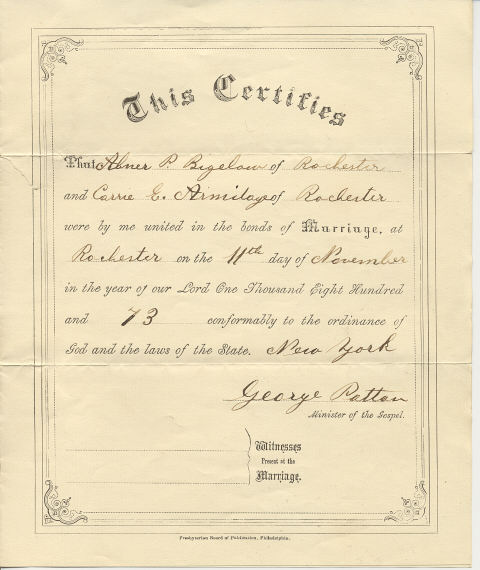 This Certifies
That Abner P. Bigelow of Rochester
and Carrie E. Armitage of Rochester
were by me united in the bonds of Marriage, at
Rochester on the 11th day of November
in the year of our Lord One Thousand Eight Hundred
and 73 conformably to the ordinance of
God and the laws of the State. New York
George Patton
Minister of the Gospel.
Witnesses
Present at the
Marriage.
Presbyterian Board of Publication, Philadelphia.